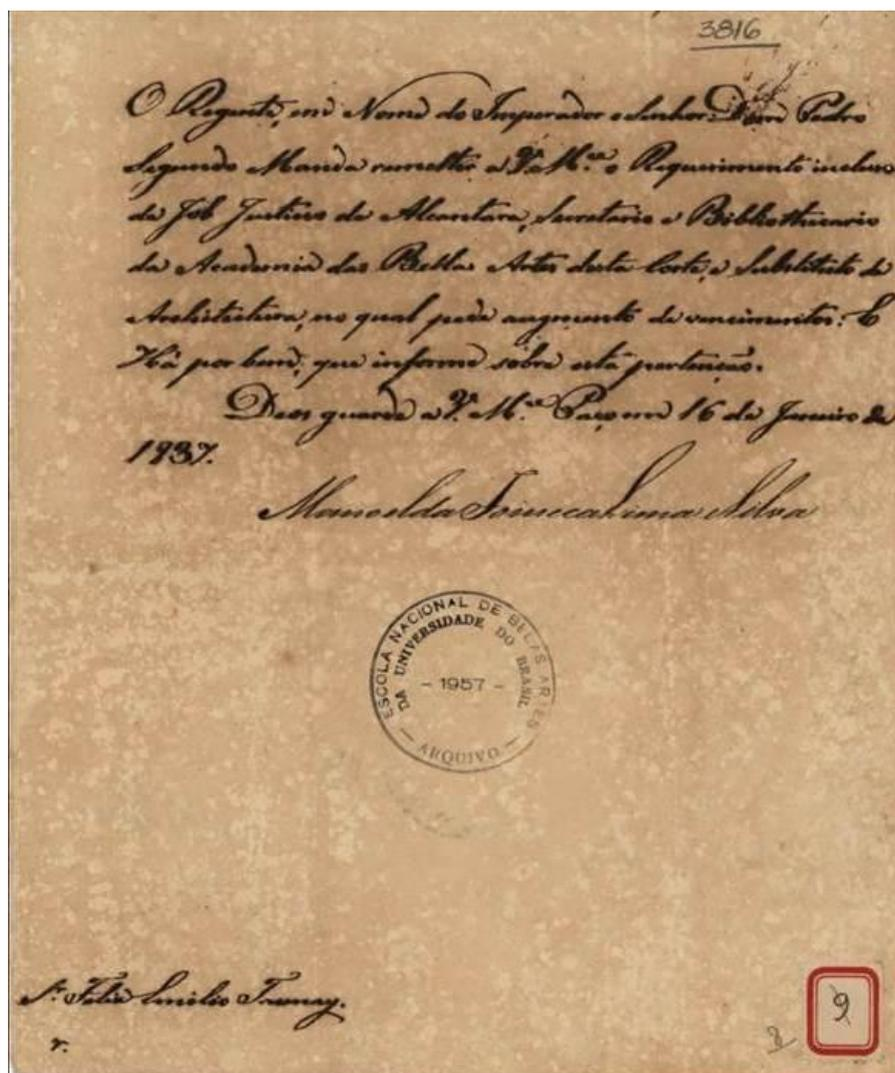 3816
O Regente, em Nome do Imperador o Senhor Dom Pedro
Segundo Manda remetter a V. M.ce o Requerimento incluso
de Job Justino de Alcantara, Secretario e Bibliothecario
da Academia das Bellas Artes desta Corte, e Substituto de
Architectura, no qual pede augmento de vencimentos: E
Há por bem, que informe sobre esta pertenção.
Deos guarde a V. M.ce Paço em 16 de Janeiro de
1837.
Manoel da Fonseca Lima Silva
ESCOLA NACIONAL DE BELAS ARTES
DA UNIVERSIDADE DO BRASIL
- 1957 -
ARQUIVO
Sr. Felix Emilio Taunay.
9